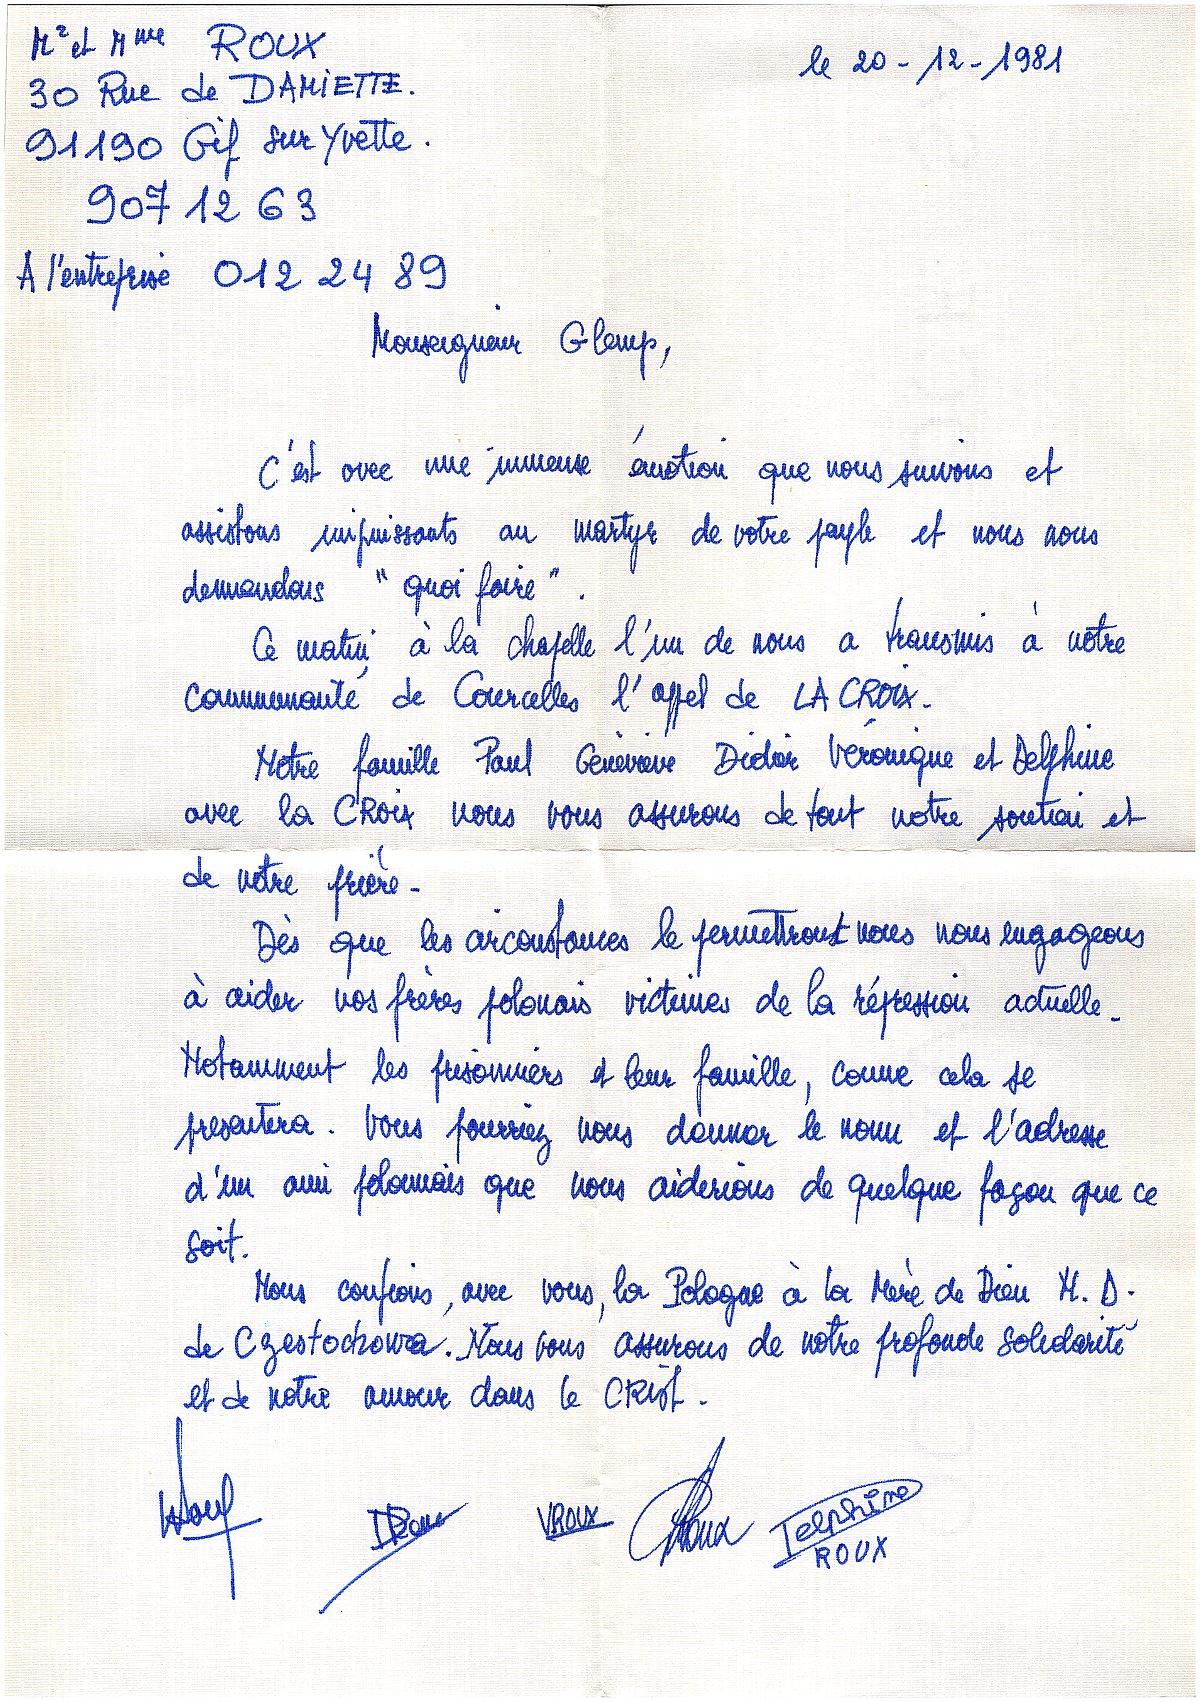 Mr et Mme ROUX
le 20-12-1981
30 Rue de DAMIETTE.
91190 Gif sur Yvette.
907 12 63
A l'entreprise 012 24 89
Monseigneur Glemp,
C'est avec une immense émotion que nous suivons et
assistons impuissants au martyr de votre peuple et nous nous
demandons "quoi faire".
Ce matin à la chapelle l'un de nous a transmis à notre
communauté de Courcelles l'appel de LA CROIX.
Notre famille Paul Geneviève Didier Véronique et Delphine
avec la CROIX nous vous assurons de tout notre soutien et
de notre prière-
Dès que les circonstances le permettront nous nous engageons
à aider vos frères polonais victimes de la répression actuelle-
Notamment les prisonniers et leur famille, comme cela se
presentera. Vous pourriez nous donner le nom et l'adresse
d'un ami polonais que nous aiderions de quelque façon que ce
soit.
Nous confions, avec vous, la Pologne à la Mère de Dieu N.D.
de Czestochowa. Nous vous assurons de notre profonde solidarité
et de notre amour dans le CRist.
DRoux VROUX Roux Delphine
ROUX